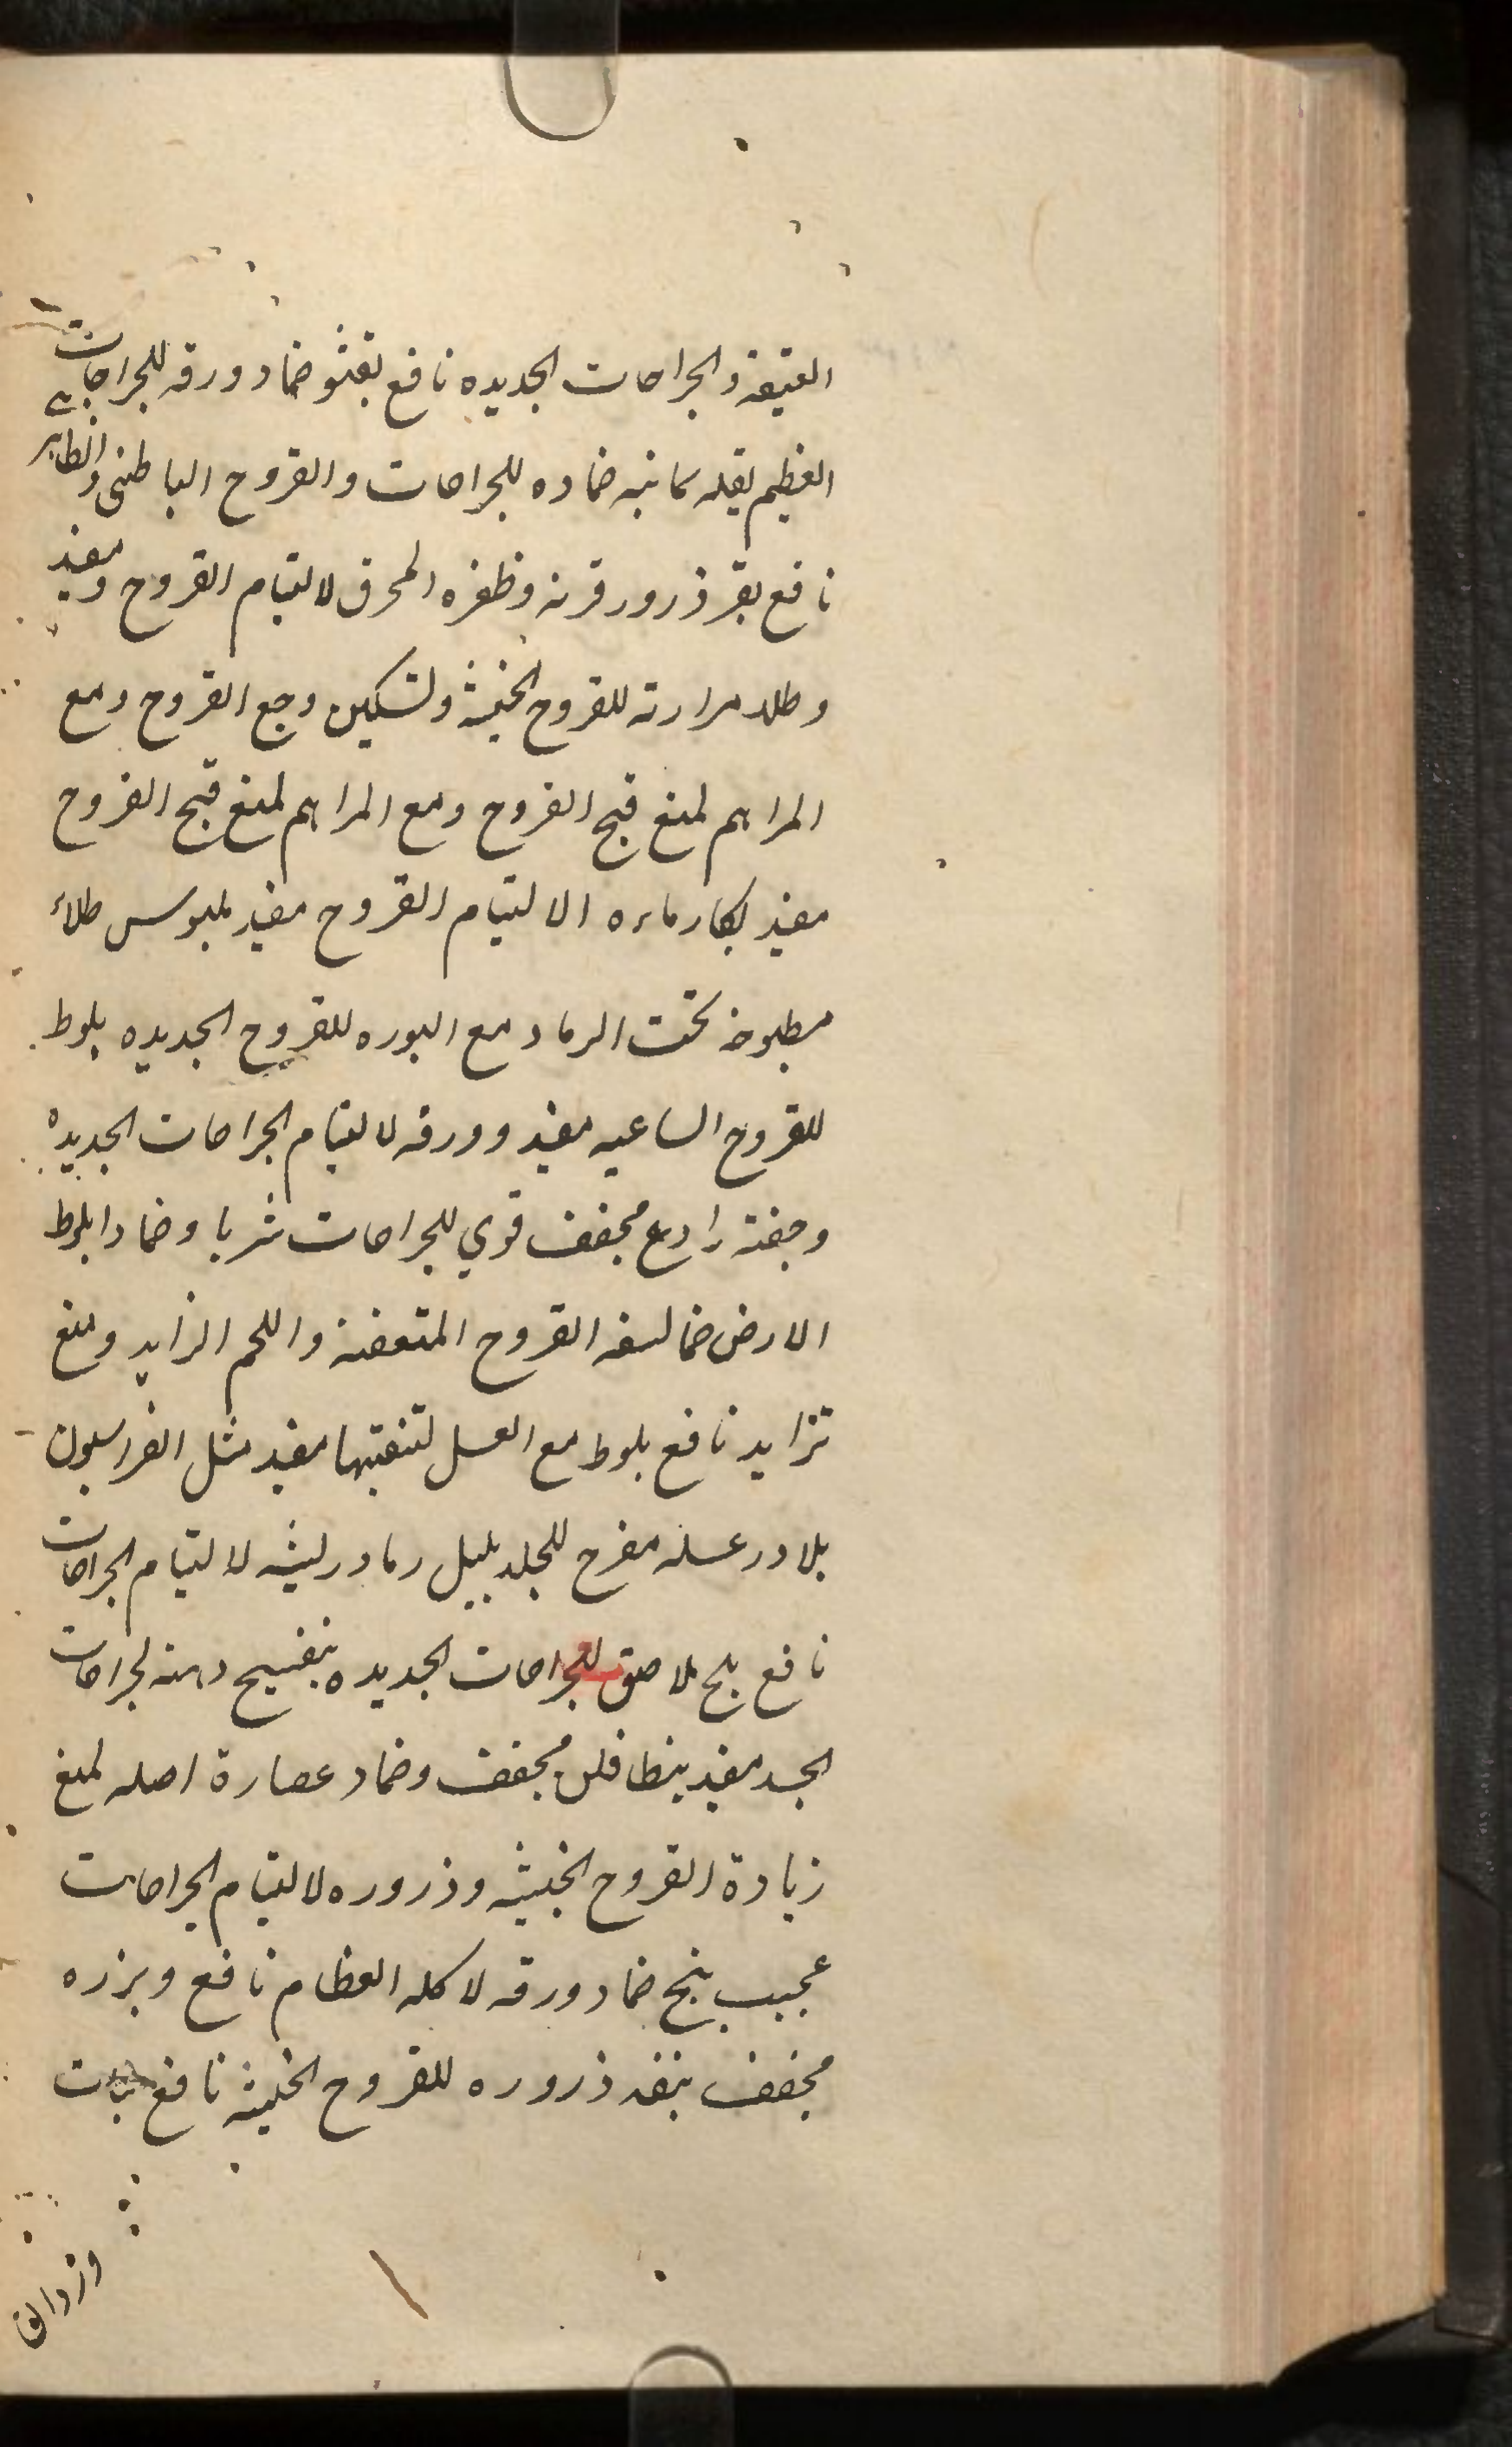 العتيقة والجراحات الجديده نافع بقثو ضماد ورقه للجراحات
العظيم بقله يمانيه ضماده للجراحات والقروح الباطنى والظاهر
نافع بقر ذرور قرنه وظفره المحرق لالتيام القروح ومفيد
وطلاء مرارته للقروح الخبيثه ولتسكين وجع القروح ومع
المراهم لمنع قيح القروح ومع المراهم لمنع قيح القروح
مفيد رماده الالتيام القروح مفيد بلبوس طلاء
مطبوخه تحت الرماد مع البوره للقروح الجديده بلوط
للقروح الساعيه مفيد وورقه لالتيام الجراحات الجديده
وجفته رادع مجفف قوي للجراحات شربا وضمادا بلوط
الارض القروح المتعفنة واللحم الزايد ومنع
تزايد نافع بلوط مع العسل لتنقيتها مفيد مثل الفراسيون
بلادر عسله مقرح للجلد بلبل رماد ريشه لالتيام الجراحات
نافع بلح ملاصق للجراحات الجديده بنفسج دهنه لجراحات
الجسد مفيد بنطافلن مجفف وضماد عصارة اصله لمنع
زيادة القروح الخبيثه وذروره لالتيام الجراحات
عجيب بنج ضماد ورقه لاكله العظام نافع وبزره
مجفف ذروره للقروح الخبيثه نافع نبات